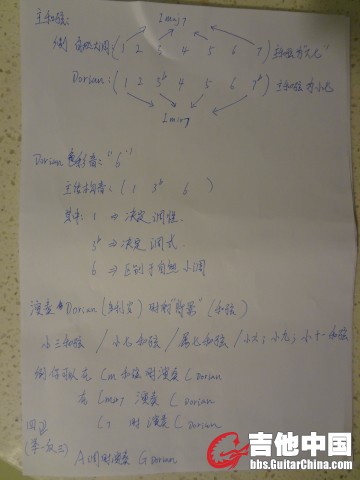 主和弦:
Imaj7
例 自然大调 (1 2 3 4 5 6 7) 主和弦为"大七"
Dorian: (1 2 3b 4 5 6 7b) 主和弦为小七
Imin7
Dorian 色彩音: "6"
主体结构音: (1 3b 6 )
其中: 1 ⇒ 决定调性
3b ⇒ 决定调式
6 ⇒ 区别于自然小调
演奏 Dorian 时的"背景" (和弦)
小三和弦 / 小七和弦 / 属七和弦 / 小六, 小九, 小十一和弦
例 你可以在 Cm 和弦时演奏 C Dorian
在 Cmin7 演奏 C Dorian
C7 时 演奏 C Dorian
(举一反三)
A 调时演奏 G Dorian
吉他中国
bbs.GuitarChina.com